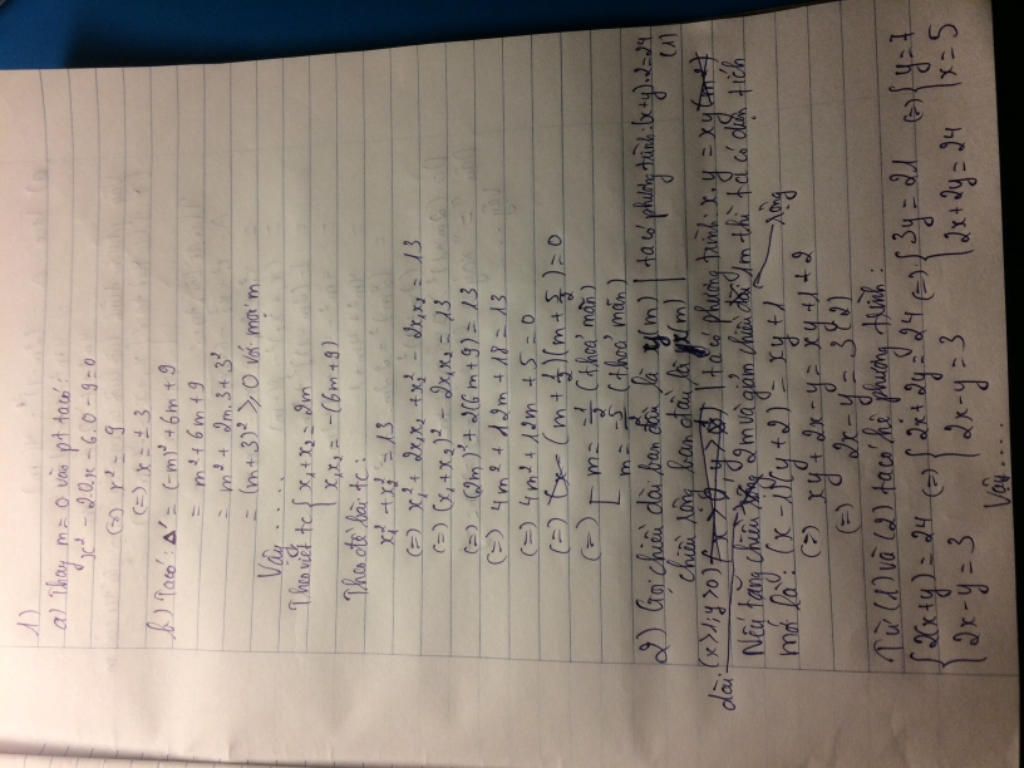 1)
a) Thay m = 0 vào pt ta có:
x² - 2.0.x - 6.0 - 9 = 0
(=) x² = 9
(=) x = ± 3
b) Ta có: Δ' = (-m)² + 6m + 9
= m² + 6m + 9
= m² + 2m.3 + 3²
= (m+3)² ≥ 0 với mọi m
Vậy ....
Theo viét tc { x₁ + x₂ = 2m
x₁x₂ = -(6m+9)
Theo đề bài tc:
x₁² + x₂² = 13
(=) x₁² + 2x₁x₂ + x₂² - 2x₁x₂ = 13
(=) (x₁ + x₂)² - 2x₁x₂ = 13
(=) (2m)² + 2(6m + 9) = 13
(=) 4m² + 12m + 18 = 13
(=) 4m² + 12m + 5 = 0
(=) (m + 1/2)(m + 5/2) = 0
(=) [ m = -1/2 (thoả mãn)
m = -5/2 (thoả mãn)
2) Gọi chiều dài ban đầu là x(m) | ta có phương trình: (x+y).2 = 24
chiều rộng ban đầu là y(m) | (1)
(x>1; y>0) | ta có phương trình: x.y = xy
Nếu tăng chiều dài 2m và giảm chiều rộng 1m thì tc có diện tích
mới là: (x - 1)(y + 2) = xy + 1
(=) xy + 2x - y = xy + 1 + 2
(=) 2x - y = 3 (2)
Từ (1) và (2) ta có hệ phương trình:
{ 2(x+y) = 24 (=) { 2x + 2y = 24 (=) { 3y = 21 (=) { y = 7
2x - y = 3 { 2x - y = 3 { 2x + 2y = 24 { x = 5
Vậy ....